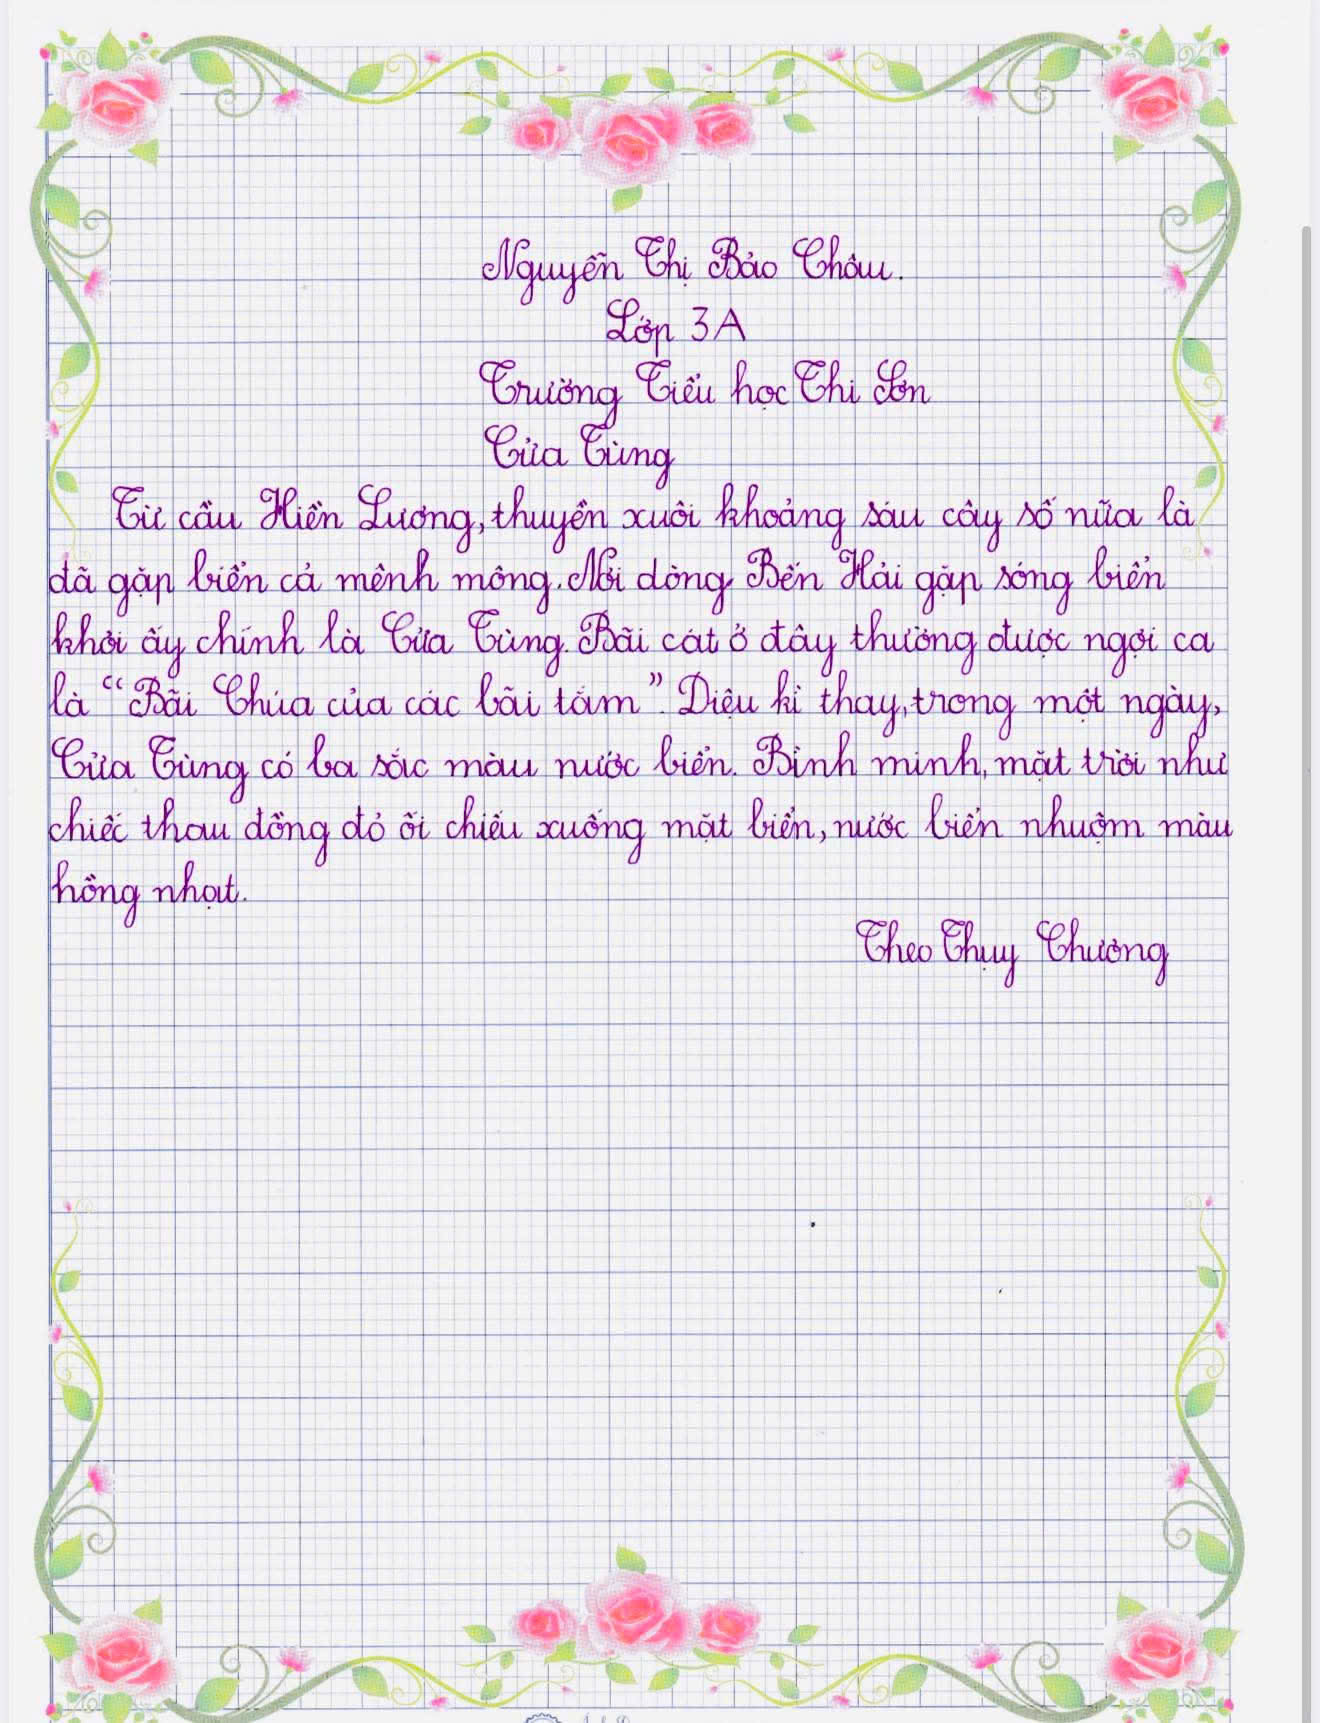 Nguyễn Thị Bảo Châu.
Lớp 3A
Trường Tiểu học Thi Sơn
Cửa Tùng
Từ cầu Hiền Lương, thuyền xuôi khoảng sáu cây số nữa là
đã gặp biển cả mênh mông. Nơi dòng Bến Hải gặp sóng biển
khơi ấy chính là Cửa Tùng. Bãi cát ở đây thường được ngợi ca
là “Bãi Chúa của các bãi tắm”. Diệu kì thay, trong một ngày,
Cửa Tùng có ba sắc màu nước biển. Bình minh, mặt trời như
chiếc thau đồng đỏ ối chiếu xuống mặt biển, nước biển nhuộm màu
hồng nhạt.
Theo Thụy Chương